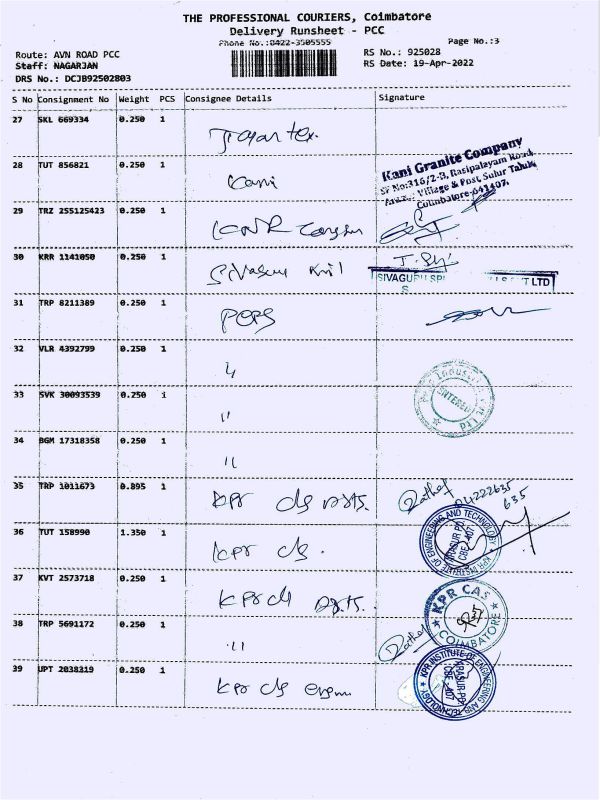 THE PROFESSIONAL COURIERS, Coimbatore
Delivery Runsheet - PCC
Phone No.:0422-3505555
Page No.:3
Route: AVN ROAD PCC
RS No.: 925028
Staff: NAGARJAN
RS Date: 19-Apr-2022
DRS No.: DCJB92502803
S No Consignment No Weight PCS Consignee Details Signature
27 SKL 669334 0.250 1
28 TUT 856821 0.250 1 Kani
Kani Granite Company
SF No:316/2-B, Rasipalayam Road
Village & Post, Sulur Taluk
Coimbatore-641407.
29 TRZ 255125423 0.250 1 KNR
30 KRR 1141050 0.250 1 Sivaguru
SIVAGURU SPI
LTD
31 TRP 8211389 0.250 1
32 VLR 4392799 0.250 1 "
33 SVK 30093539 0.250 1 "
34 BGM 17318358 0.250 1 "
35 TRP 1011673 0.895 1 kpr clg
04222635
635
36 TUT 158990 1.350 1 kpr clg.
KPR INSTITUTE OF ENGINEERING AND TECHNOLOGY
37 KVT 2573718 0.250 1 kpr clg
KPR CAS
COIMBATORE
38 TRP 5691172 0.250 1 "
39 UPT 2038219 0.250 1 kpr clg
KPR INSTITUTE OF ENGINEERING AND TECHNOLOGY